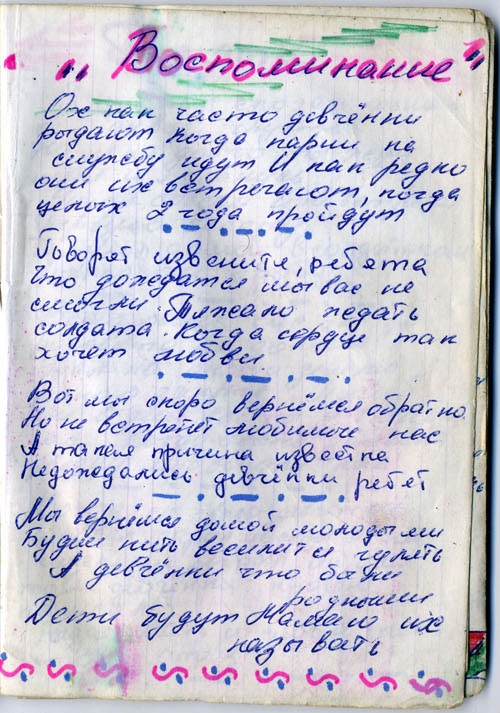 "Воспоминание"
Ох как часто девчёнки
рыдают когда парни на
службу идут И как редко
они их встречают, когда
целых 2 года пройдут
Говорят извените, ребята
Что дождатся мы вас не
смогли. Тяжело ждать
солдата. Когда сердце так
хочет любви
Вот мы скоро вернёмся обратно
Но не встретят любимые нас
А такая причина известна
Недождались девчёнки ребят
Мы вернёмся домой молодыми
Будем пить веселится гулять
А девчёнки что были
родными
Дети будут Мамаю их
называть